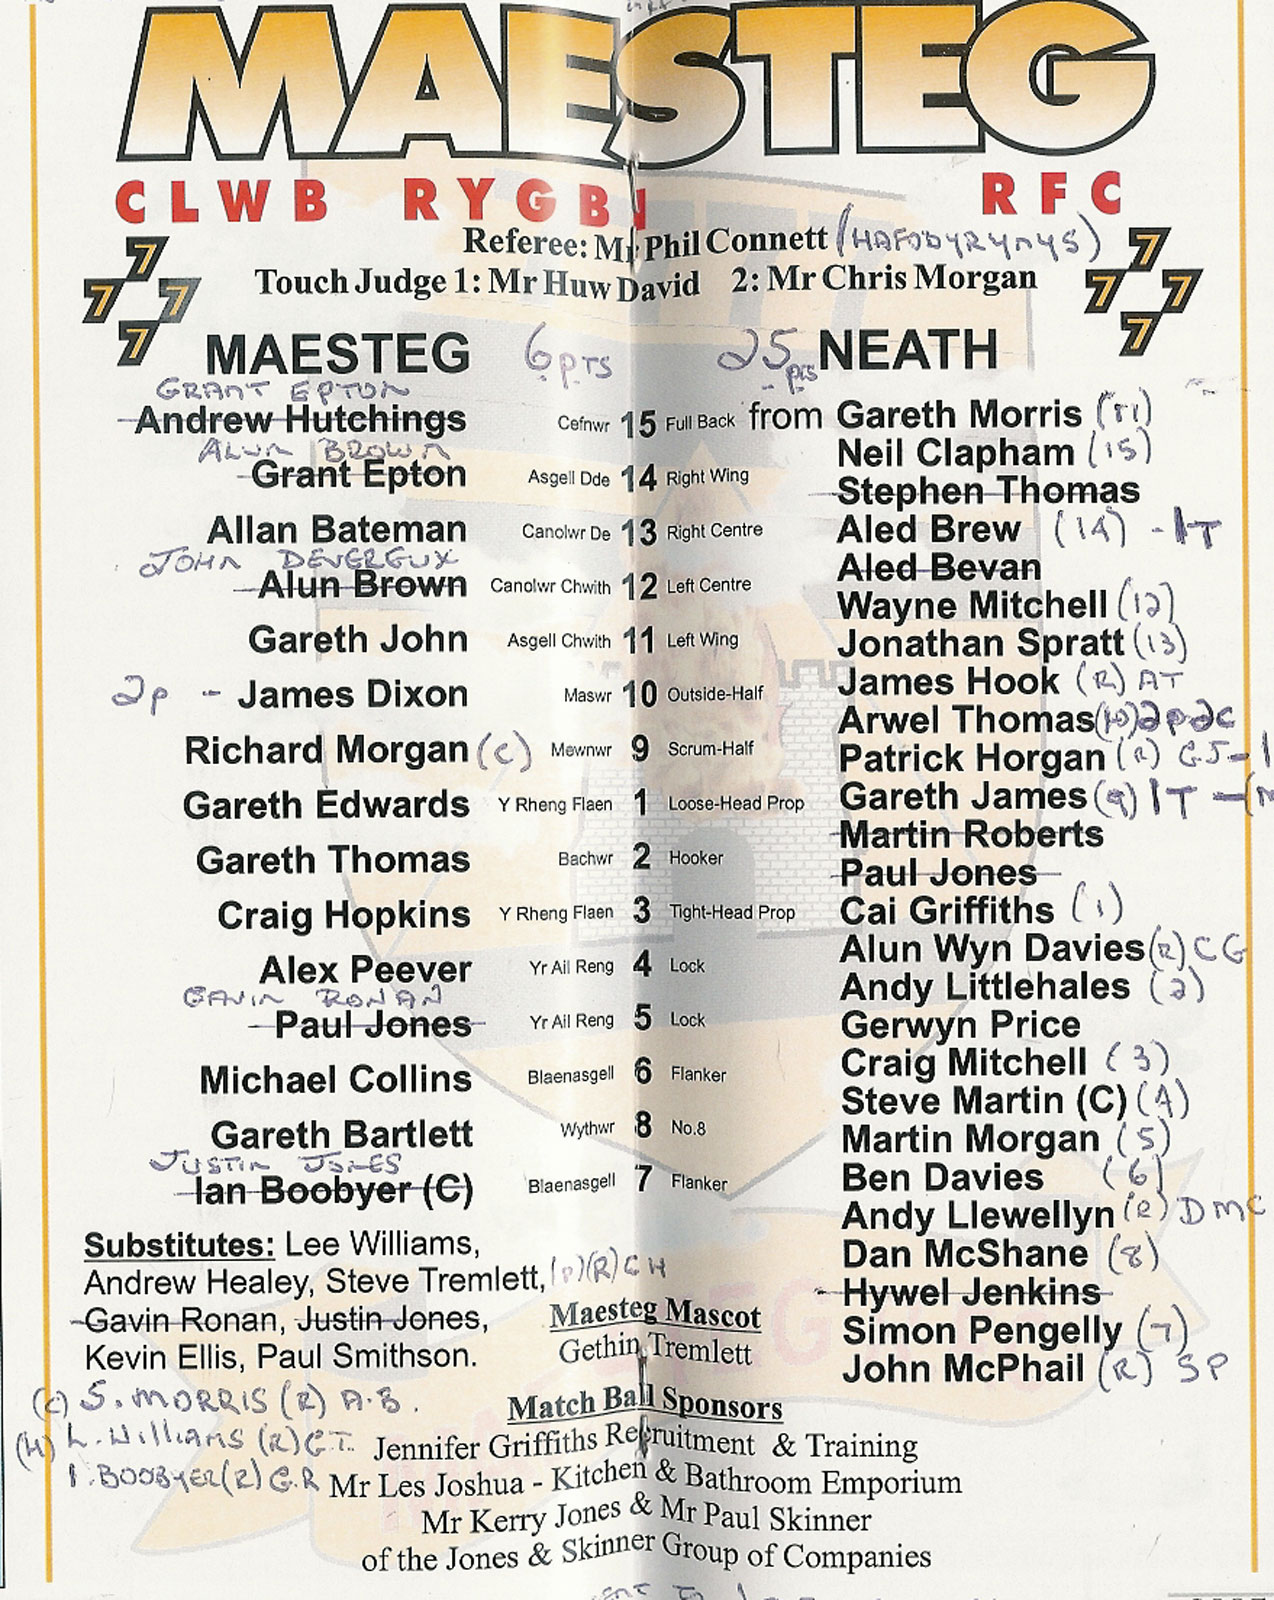 MAESTEG
CLWB RYGBI RFC
Referee: Mr Phil Connett (HAFODYRYNYS)
Touch Judge 1: Mr Huw David 2: Mr Chris Morgan
7 7 7 7
7 7 7 7
MAESTEG 6pts 25pts NEATH
GRANT EPTON
Andrew Hutchings Cefnwr 15 Full Back from
ALUN BROWN
Grant Epton Asgell Dde 14 Right Wing
Allan Bateman Canolwr De 13 Right Centre
JOHN DEVEREUX
Alun Brown Canolwr Chwith 12 Left Centre
Gareth John Asgell Chwith 11 Left Wing
2p - James Dixon Maswr 10 Outside-Half
Richard Morgan (C) Mewnwr 9 Scrum-Half
Gareth Edwards Y Rheng Flaen 1 Loose-Head Prop
Gareth Thomas Bachwr 2 Hooker
Craig Hopkins Y Rheng Flaen 3 Tight-Head Prop
Alex Peever Yr Ail Reng 4 Lock
GAVIN RONAN
Paul Jones Yr Ail Reng 5 Lock
Michael Collins Blaenasgell 6 Flanker
Gareth Bartlett Wythwr 8 No.8
JUSTIN JONES
Ian Boobyer (C) Blaenasgell 7 Flanker
Gareth Morris (11)
Neil Clapham (15)
Stephen Thomas
Aled Brew (14) - 1T
Aled Bevan
Wayne Mitchell (12)
Jonathan Spratt (13)
James Hook (R) AT
Arwel Thomas (10) 2p 2c
Patrick Horgan (R) GJ-1
Gareth James (9) 1T
Martin Roberts
Paul Jones
Cai Griffiths (1)
Alun Wyn Davies (R) CG
Andy Littlehales (2)
Gerwyn Price
Craig Mitchell (3)
Steve Martin (C) (4)
Martin Morgan (5)
Ben Davies (6)
Andy Llewellyn (R) DMC
Dan McShane (8)
Hywel Jenkins
Simon Pengelly (7)
John McPhail (R) SP
Substitutes: Lee Williams,
Andrew Healey, Steve Tremlett, (P)(R) CH
Gavin Ronan, Justin Jones,
Kevin Ellis, Paul Smithson.
(C) S. MORRIS (R) A.B.
(H) L. Williams (R) G.T.
I. BOOBYER (R) G.R
Maesteg Mascot
Gethin Tremlett
Match Ball Sponsors
Jennifer Griffiths Recruitment & Training
Mr Les Joshua - Kitchen & Bathroom Emporium
Mr Kerry Jones & Mr Paul Skinner
of the Jones & Skinner Group of Companies